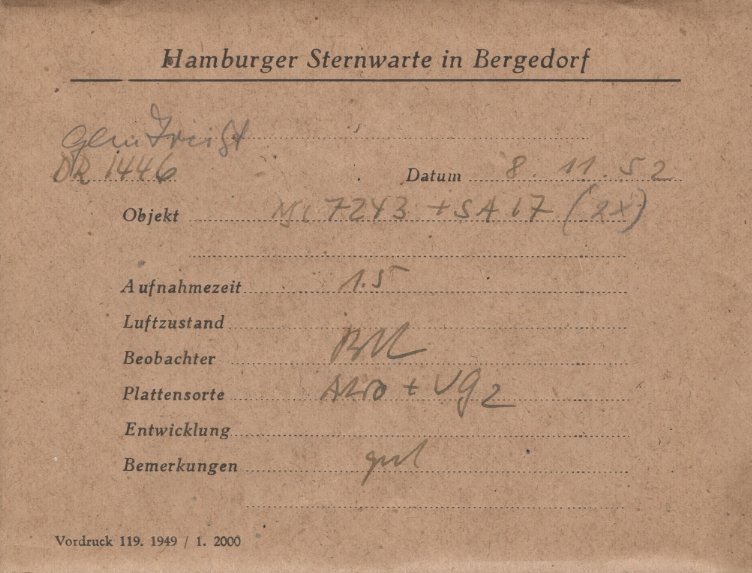 Hamburger Sternwarte in Bergedorf
DR 1446
Datum 8. 11. 52
Objekt 7243 + SA 17 (2x)
Aufnahmezeit 1.5
Luftzustand
Beobachter
Plattensorte + UG 2
Entwicklung
Bemerkungen gut
Vordruck 119. 1949 / 1. 2000